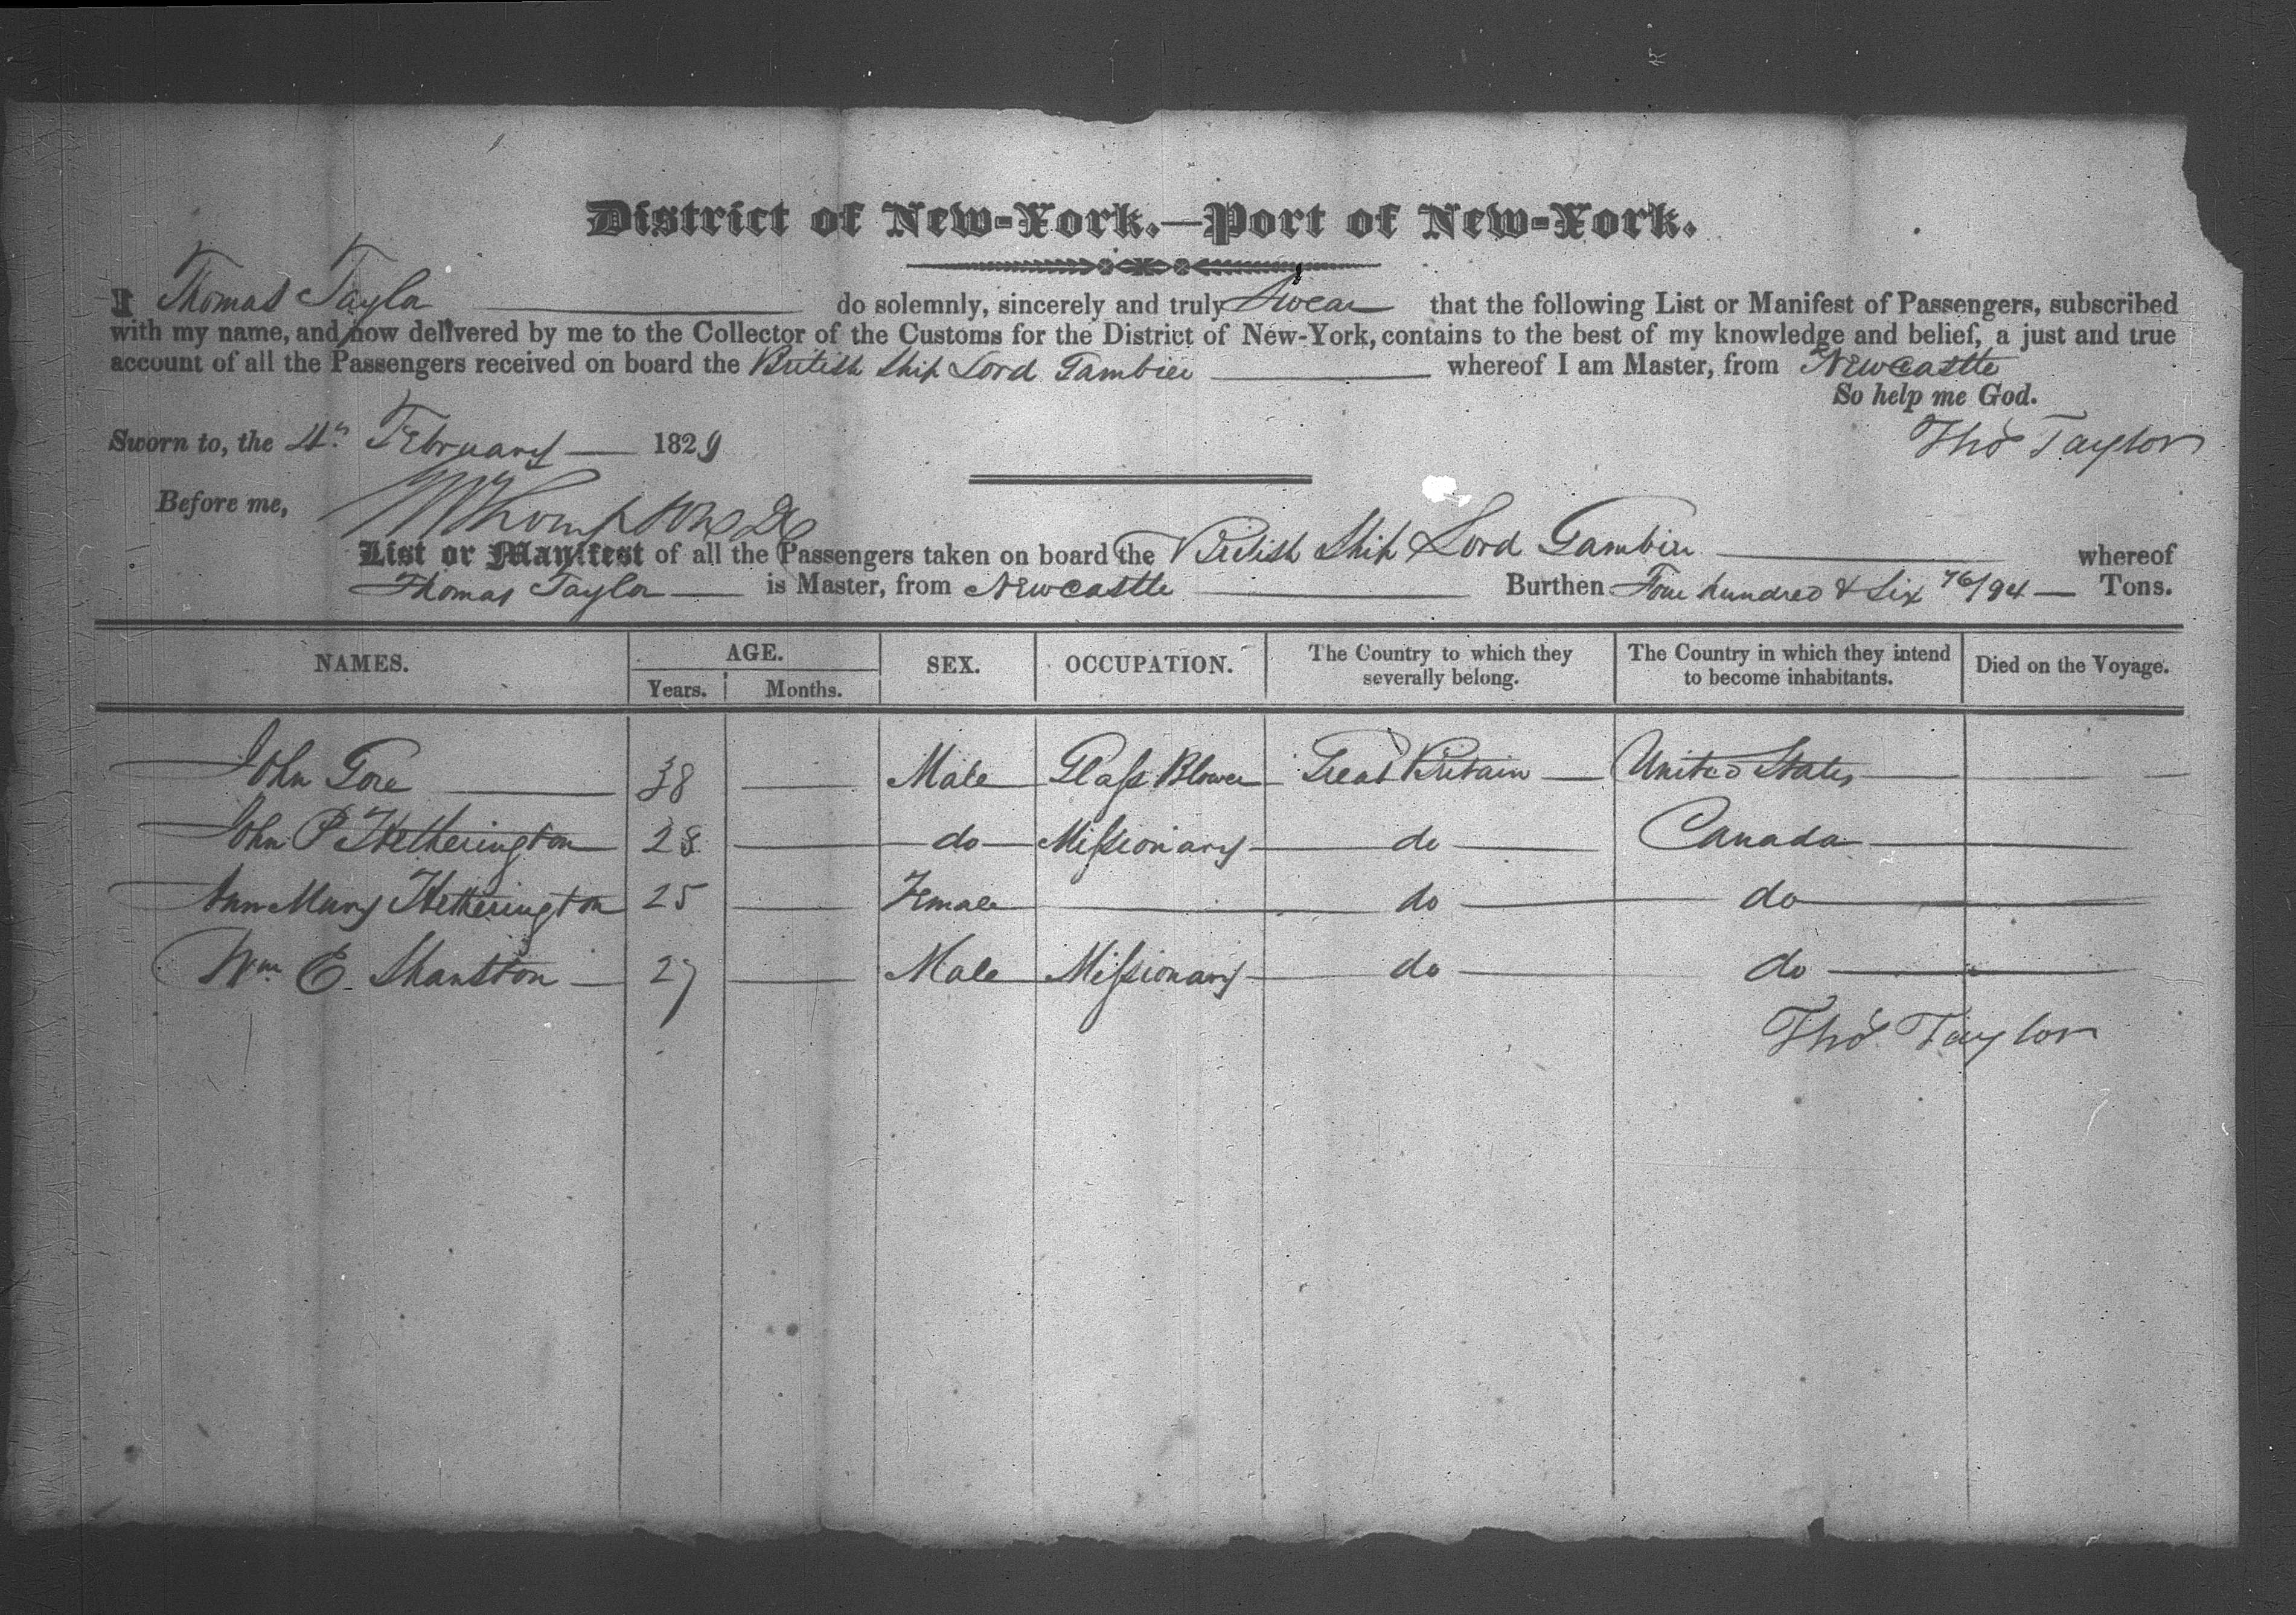 District of New-York.—Port of New-York.
I Thomas Taylor do solemnly, sincerely and truly Swear that the following List or Manifest of Passengers, subscribed
with my name, and now delivered by me to the Collector of the Customs for the District of New-York, contains to the best of my knowledge and belief, a just and true
account of all the Passengers received on board the British Ship Lord Gambier whereof I am Master, from Newcastle
So help me God.
Sworn to, the 4th February 1829
Thos Taylor
Before me,
List or Manifest of all the Passengers taken on board the British Ship Lord Gambier whereof
Thomas Taylor is Master, from Newcastle Burthen Four hundred & Six 76/94 Tons.
NAMES. AGE. SEX. OCCUPATION. The Country to which they severally belong. The Country in which they intend to become inhabitants. Died on the Voyage.
Years. Months.
John Gore 38 Male Glass Blower Great Britain United States
John P Hetherington 28 do Missionary do Canada
Ann Mary Hetherington 25 Female do do
Wm E. Shenston 27 Male Missionary do do
Thos Taylor